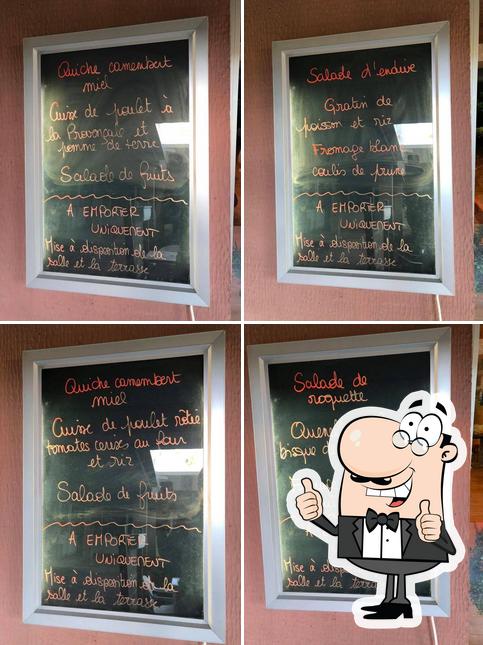 Quiche camembert
miel
Cuisse de poulet à
la Provençale et
pomme de terre
Salade de fruits
A EMPORTER
UNIQUEMENT
Mise à disposition de la
salle et la terrasse
Salade d'endive
Gratin de
poisson et riz
Fromage blanc
coulis de prune
A EMPORTER
UNIQUEMENT
Mise à disposition de la
salle et la terrasse
Quiche camembert
miel
Cuisse de poulet rôtie
tomates cerises au four
et riz
Salade de fruits
A EMPORTER
UNIQUEMENT
Mise à disposition de la
salle et la terrasse
Salade de
roquette
bisque
Mise à
salle et la